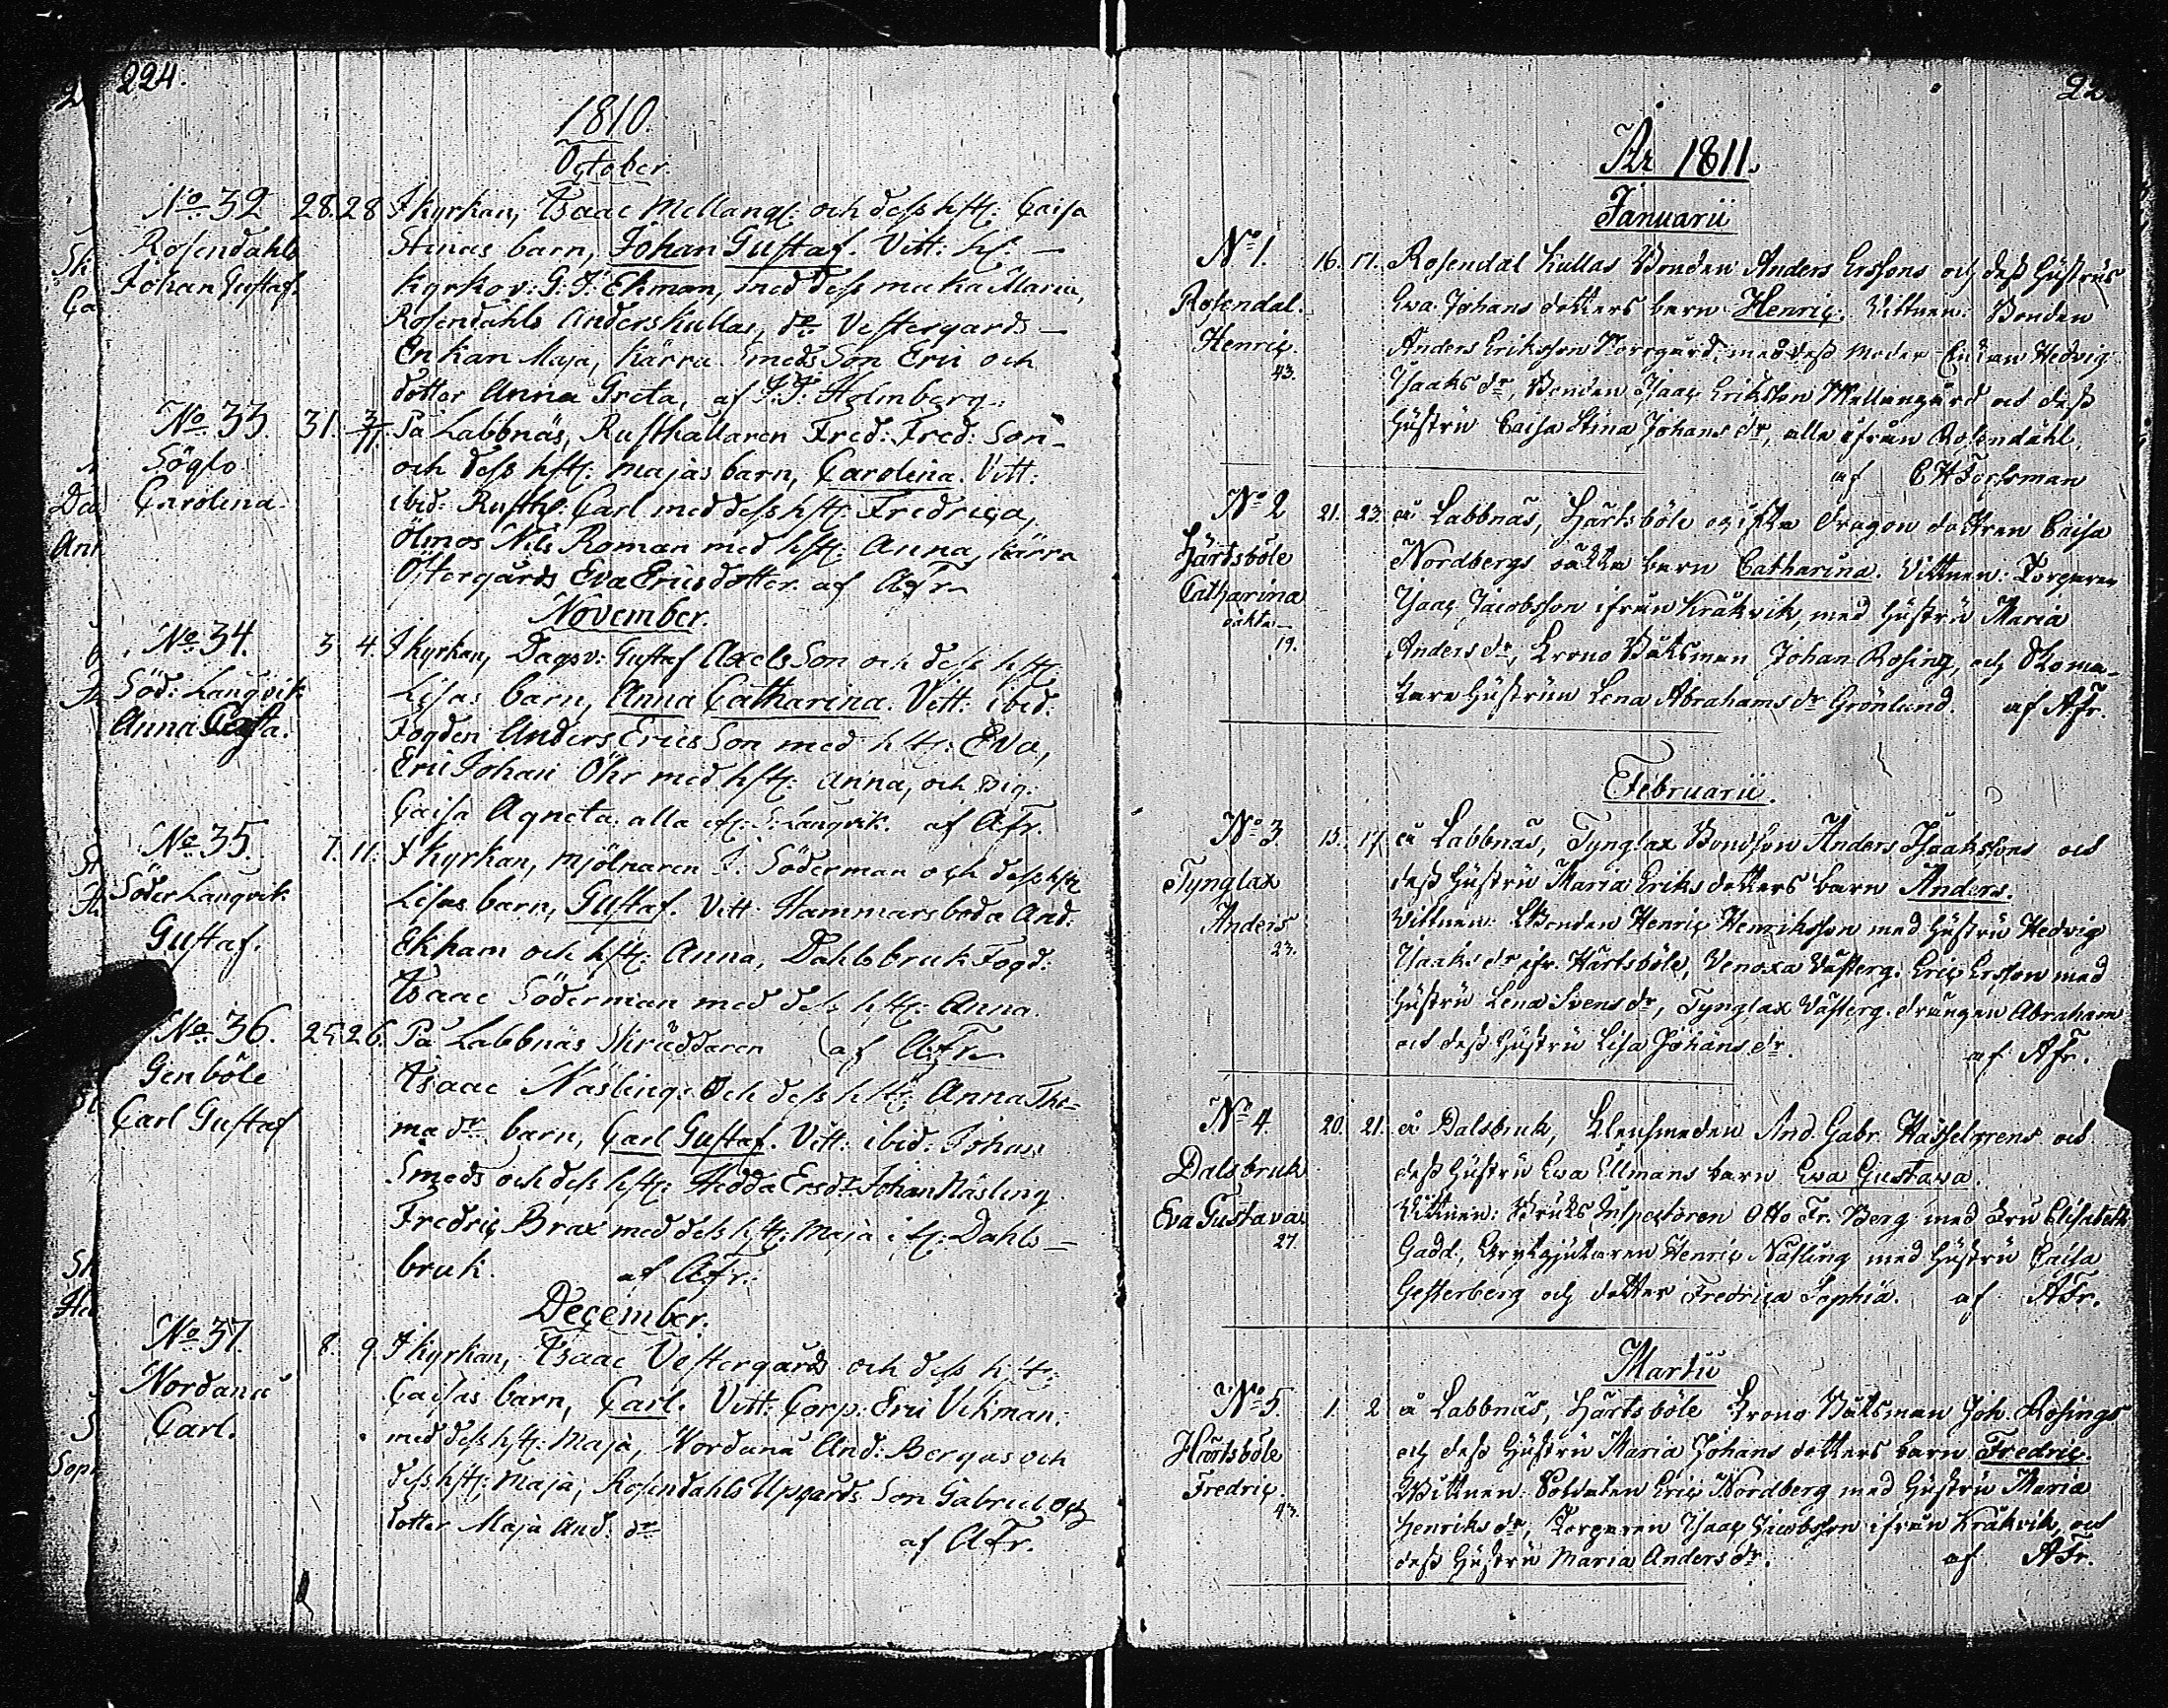 224.
1810.
October.
No 32 28. 28 I kyrkan, Isaac Mellangs: och dess hst: Caisa
Rosendahls Stinas barn, Johan Gustaf. Vitt: hs: —
Johan Gustaf. Kyrkov: G: J: Ekman, med dess maka Maria,
Rosendahls Anderskullas, dr Vestergards —
Enkan Maja, Kärra Smeds Son Eric och
dotter Anna Greta, af J. J. Holmberg.
No 33. 31. 3/11. På Labbnäs, Rusthallaren Fred: Fred: Son
Söglo och dess hst: Majas barn, Carolina. Vitt:
Carolina ibid: Rusth: Carl med dess hst: Fredrica,
Ölmos Nils Roman med hst: Anna, Kärra
Östergårds Eva Ericsdotter. af AFr
November.
No 34. 3 4. I kyrkan, Dagsv: Gustaf Axels Son och dess hst:
Söd: Langvik Lisas barn, Anna Catharina. Vitt: ibid:
Anna Fogden Anders Erics Son med hst: Eva,
Eric Johan Öhr med hst: Anna, och pig:
Caisa Agneta alla S: Langvik. af AFr.
No 35. 7. 11. I kyrkan, mjölnaren J: Söderman och dess hst:
Söder Langvik Lisas barn, Gustaf. Vitt: Hammarsboda And:
Gustaf. Ekham och hst: Anna, Dahlsbruk Fogd:
Isaac Söderman med dess hst: Anna.
No 36. 25 26. På Labbnäs Skräddaren (af AFr
Genböle Isaac Näsling: Och dess hst: Anna Tho=
Carl Gustaf ma dr barn, Carl Gustaf. Vitt: ibid: Johan
Smeds och dess hst: Hedda Ersdr Johan Näsling
Fredric Brax med dess hst: Maja Dahls—
bruk. af AFr.
December.
No 37. 8. 9 I kyrkan, Isaac Vestergards och dess hst:
Nordanå Caisas barn, Carl. Vitt: Corp: Eric Vikman.
Carl. med dess hst: Maja, Nordanå And: Bergas och
dess hst: Maja, Rosendahls Upgards Son Gabriel och
dotter Maja And: dr
af AFr.
År 1811.
Januarii
No 1. 16. 17. Rosendal Kullas Bonden Anders Erssons och dess Hustrus
Rosendal. Ewa Johans dotters barn Henric. Vittnen: Bonden
Henric. Anders Eriksson Norrgård, med dess Moder Enkan Hedvig
43. Isaaks dr, Bonden Isaac Eriksson Mellangård och dess
Hustru Caisa Stina Johans dr, alla ifrån Rosendahl,
af C H Forssman
No 2 21. 23. å Labbnäs, Härtsböle ogifta dragon dottren Caisa
Härtsböle Nordbergs oäkta barn Catharina. Vittnen: Torparen
Catharina Isaac Jacobsson ifrån Kråkvik, med Hustru Maria
oäkta— Anders dr, Krono Båtsman Johan Rosing, och Skoma-
19. kare Hustrun Lena Abrahams dr Grönlund. af AFr.
Februarii.
No 3. 15. 17 å Labbnäs, Tynglax Bondson Anders Isaakssons och
Tynglax dess Hustru Maria Eriks dotters barn Anders.
Anders Vittnen: Bonden Henric Henriksson med Hustru Hedvig
23. Isaaks dr ifr. Härtsböle, Venoxa Västerg. Eric Ersson med
Hustru Lena Svens dr, Tynglax Västerg. drängen Abraham
och dess Hustru Lisa Johans dr. af AFr.
No 4. 20. 21. å Dalsbruk, Klensmeden And. Gabr. Hasselgrens och
Dalsbruk dess Hustru Ewa Ellmans barn Ewa Gustawa.
Eva Gustava Vittnen: Bruks Inspectoren Otto Fr. Berg med Fru Elisabeth
27. Gadd, Grytgjutaren Henric Näsling med Hustru Caisa
Gesterberg och dotter Fredrica Sophia. af AFr.
Martii
No 5. 1. 2 å Labbnäs, Härtsböle Krono Båtsman Joh. Rosings
Härtsböle och dess Hustru Maria Johans dotters barn Fredric.
Fredric. Wittnen: Soldaten Eric Nordberg med Hustru Maria
43. Henriks dr, Torparen Isaac Jacobsson ifrån Kråkvik, och
dess Hustru Maria Anders dr. af AFr.